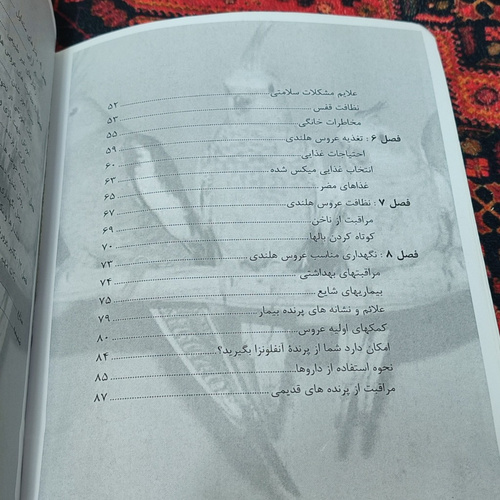 علایم مشکلات سلامتی ۵۲
نظافت قفس ۵۳
مخاطرات خانگی ۵۵
فصل ۶ : تغذیه عروس هلندی ۵۹
احتیاجات غذایی ۶۰
انتخاب غذایی میکس شده ۶۳
غذاهای مضر ۶۵
فصل ۷ : نظافت عروس هلندی ۶۷
مراقبت از ناخن ۶۹
کوتاه کردن بالها ۷۰
فصل ۸ : نگهداری مناسب عروس هلندی ۷۳
مراقبتهای بهداشتی ۷۴
بیماریهای شایع ۷۵
علائم و نشانه های پرنده بیمار ۷۹
کمکهای اولیه عروس ۸۰
امکان دارد شما از پرندهٔ آنفلونزا بگیرید؟ ۸۴
نحوه استفاده از داروها ۸۵
مراقبت از پرنده های قدیمی ۸۷